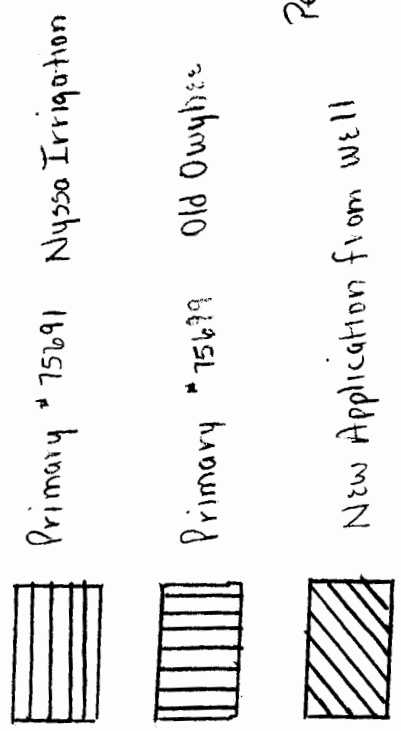 Primary #75691 Nyssa Irrigation
Primary #75699 Old Owyhee
New Application from Well